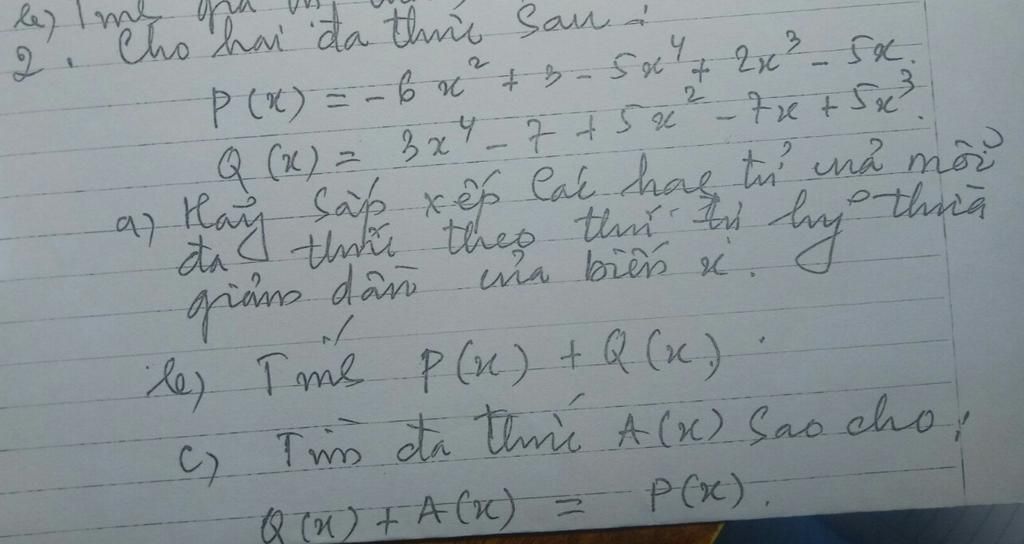 2. Cho hai đa thức sau:
P(x) = -6x² + 3 - 5x⁴ + 2x³ - 5x.
Q(x) = 3x⁴ - 7 + 5x² - 7x + 5x³.
a) Hãy sắp xếp các hạng tử của mỗi
đa thức theo thứ tự luỹ thừa
giảm dần của biến x.
b) Tính P(x) + Q(x).
c) Tìm đa thức A(x) sao cho:
Q(x) + A(x) = P(x).